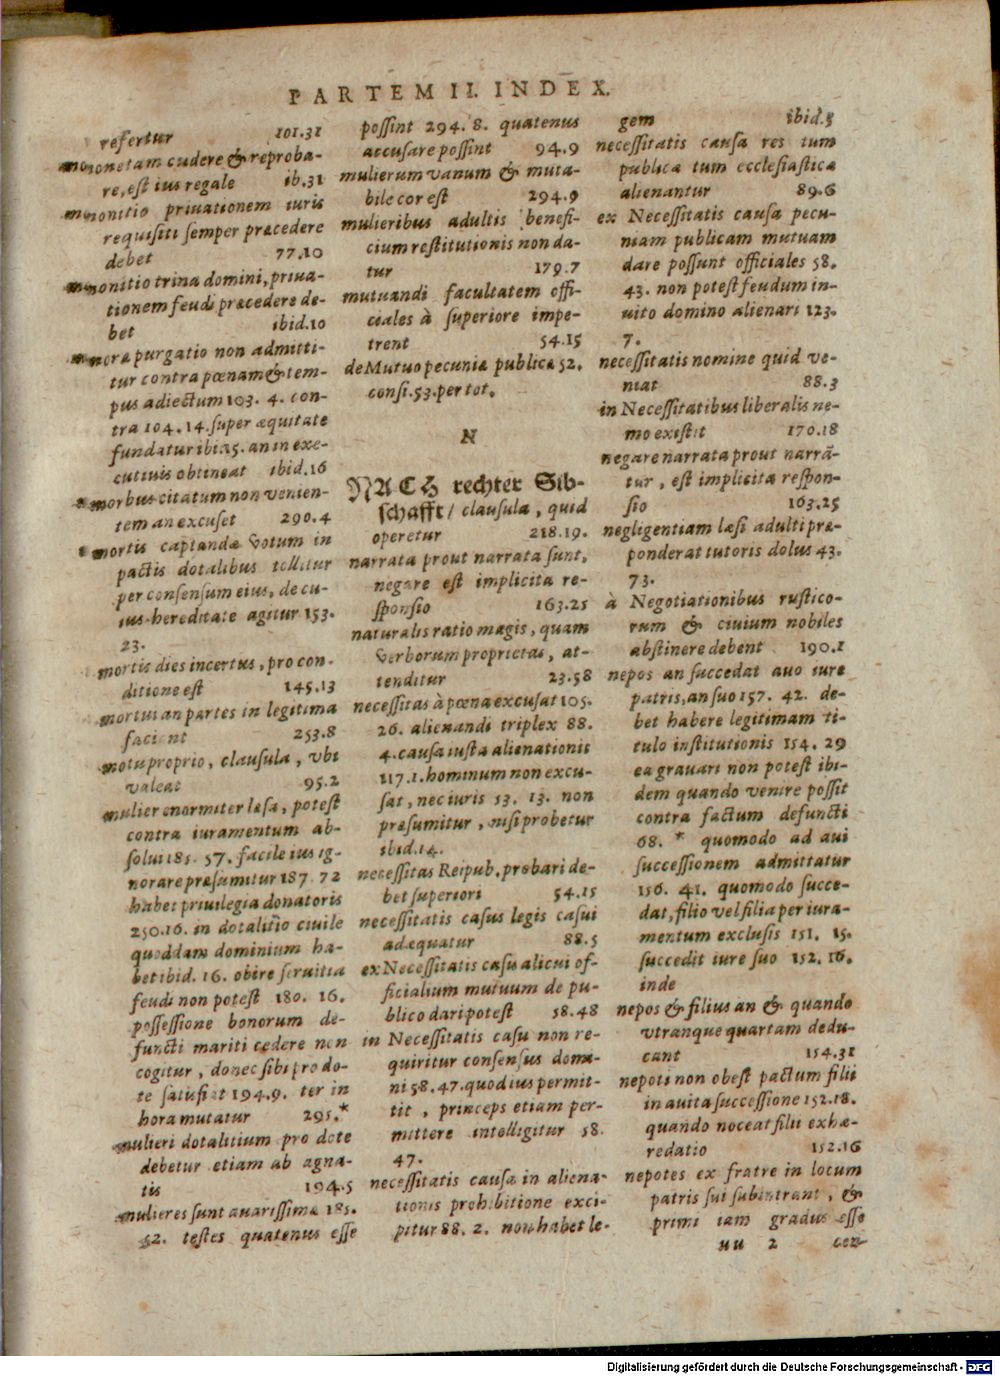 PARTEM II. INDEX.
refertur 101.31
monetam cudere & reproba-
re, est ius regale ib.31
monitio priuationem iuris
requisiti semper præcedere
debet 77.10
monitio trina domini, priua-
tionem feudi præcedere de-
bet ibid.10
moræ purgatio non admitti-
tur contra pœnam & tem-
pus adiectum 103. 4. con-
tra 104. 14. super æquitate
fundatur ibi. 15. an in exe-
cutiuis obtineat ibid.16
morbus citatum non venien-
tem an excuset 290.4
mortis captandæ votum in
pactis dotalibus tollitur
per consensum eius, de cu-
ius hereditate agitur 153.
23.
mortis dies incertus, pro con-
ditione est 145.13
mortui an partes in legitima
faciant 253.8
motu proprio, clausula, vbi
valeat 95.2
mulier enormiter læsa, potest
contra iuramentum ab-
solui 185. 57. facile ius ig-
norare præsumitur 187. 72
habet priuilegia donatoris
250.16. in dotalitio ciuile
quoddam dominium ha-
bet ibid. 16. obire seruitia
feudi non potest 180. 16.
possessione bonorum de-
functi mariti cedere non
cogitur, donec sibi pro do-
te satisfiat 194.9. ter in
hora mutatur 295.*
mulieri dotalitium pro dote
debetur etiam ab agna-
tis 194.5
mulieres sunt auarissimæ 185.
52. testes quatenus esse
possint 294. 8. quatenus
accusare possint 94.9
mulierum vanum & muta-
bile cor est 294.9
mulieribus adultis benefi-
cium restitutionis non da-
tur 179.7
mutuandi facultatem offi-
ciales à superiore impe-
trent 54.15
de Mutuo pecuniæ publicæ 52.
consi. 53. per tot.
N
NACH rechter Sib-
schafft/ clausula, quid
operetur 218.19.
narrata prout narrata sunt,
negare est implicita re-
sponsio 163.25
naturalis ratio magis, quam
verborum proprietas, at-
tenditur 23.58
necessitas à pœna excusat 105.
26. alienandi triplex 88.
4. causa iusta alienationis
117.1. hominum non excu-
sat, nec iuris 53. 13. non
præsumitur, nisi probetur
ibid.14.
necessitas Reipub. probari de-
bet superiori 54.15
necessitatis casus legis casui
adæquatur 88.5
ex Necessitatis casu alicui of-
ficialium mutuum de pu-
blico dari potest 58.48
in Necessitatis casu non re-
quiritur consensus domi-
ni 58. 47. quod ius permit-
tit, princeps etiam per-
mittere intelligitur 58.
47.
necessitatis causa in aliena-
tionis prohibitione exci-
pitur 88. 2. non habet le-
gem ibid.3
necessitatis causa res tum
publicæ tum ecclesiasticæ
alienantur 89.6
ex Necessitatis causa pecu-
niam publicam mutuam
dare possunt officiales 58.
43. non potest feudum in-
uito domino alienari 123.
7.
necessitatis nomine quid ve-
niat 88.3
in Necessitatibus liberalis ne-
mo existit 170.18
negare narrata prout narrā-
tur, est implicita respon-
sio 163.25
negligentiam læsi adulti præ-
ponderat tutoris dolus 43.
73.
à Negotiationibus rustico-
rum & ciuium nobiles
abstinere debent 190.1
nepos an succedat auo iure
patris, an suo 157. 42. de-
bet habere legitimam ti-
tulo institutionis 154. 29
ea grauari non potest ibi-
dem quando venire possit
contra factum defuncti
68. * quomodo ad aui
successionem admittatur
156. 41. quomodo succe-
dat, filio vel filia per iura-
mentum exclusis 151. 15.
succedit iure suo 152. 16.
inde
nepos & filius an & quando
vtranque quartam dedu-
cant 154.31
nepoti non obest pactum filii
in auita successione 152.18.
quando noceat filii exhæ-
redatio 152.16
nepotes ex fratre in locum
patris sui subintrant, &
primi iam gradus esse
uu 2 cen-
Digitalisierung gefördert durch die Deutsche Forschungsgemeinschaft - DFG